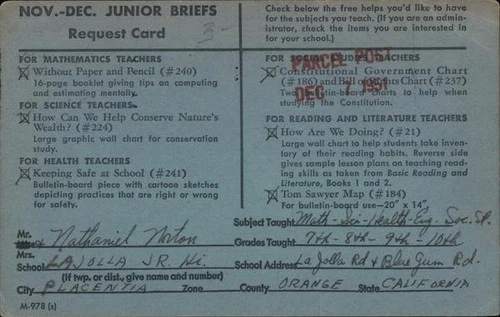 NOV.-DEC. JUNIOR BRIEFS
Request Card
3-
Check below the free helps you'd like to have
for the subjects you teach. (If you are an admin-
istrator, check the items you are interested in
for your school.)
FOR MATHEMATICS TEACHERS
Without Paper and Pencil (#240)
16-page booklet giving tips on computing
and estimating mentally.
FOR SCIENCE TEACHERS
How Can We Help Conserve Nature's
Wealth? (#224)
Large graphic wall chart for conservation
study.
FOR HEALTH TEACHERS
Keeping Safe at School (#241)
Bulletin-board piece with cartoon sketches
depicting practices that are right or wrong
for safety.
FOR SOCIAL STUDIES TEACHERS
Constitutional Government Chart
(#186) and Bill of Rights Chart (#237)
Two bulletin-board charts to help when
studying the Constitution.
PARCEL POST
DEC 7 1951
FOR READING AND LITERATURE TEACHERS
How Are We Doing? (#21)
Large wall chart to help students take inven-
tory of their reading habits. Reverse side
gives sample lesson plans on teaching read-
ing skills as taken from Basic Reading and
Literature, Books 1 and 2.
Tom Sawyer Map (#184)
For bulletin-board use—20" x 14"
Subject Taught Math-Sci-Health-Eng. Soc. St.
Mr.
Nathaniel Norton
Grades Taught 7th-8th-9th-10th
Mrs.
School LA JOLLA JR. Hi.
School Address La Jolla Rd & Blue Gum Rd.
(If twp. or dist., give name and number)
City PLACENTIA Zone County ORANGE State CALIFORNIA
M-978 (s)